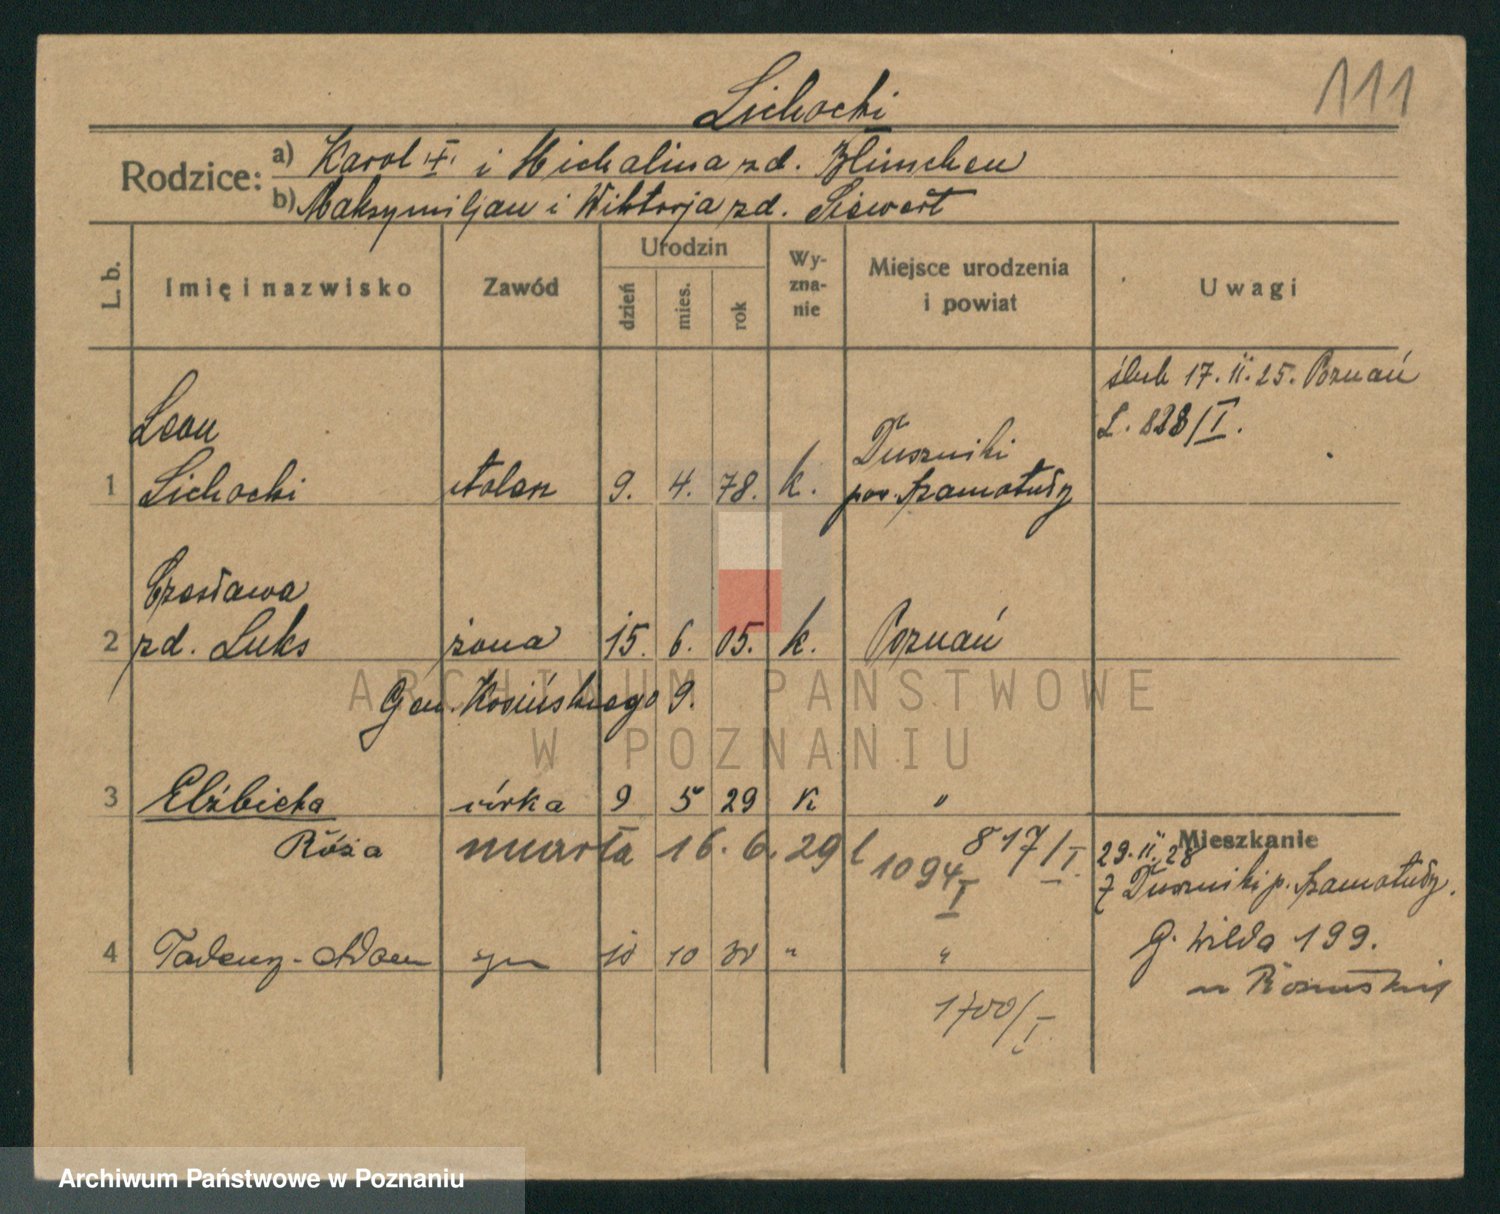 111
Lichocki
Rodzice:
a) Karol i Michalina zd. Klimchen
b) Maksymiljan i Wiktorja zd. Siewert
L. b.
Imię i nazwisko
Zawód
Urodzin
dzień
mies.
rok
Wy-
zna-
nie
Miejsce urodzenia
i powiat
Uwagi
ślub 17. II. 25. Poznań
L. 828/I.
Leon
1 Lichocki stolarz 9. 4. 78. k. Duszniki
pow. Szamotuły
Czesława
2 zd. Luks żona 15. 6. 05. k. Poznań
Gen. Kosińskiego 9.
3 Elżbieta córka 9 5 29 k "
Róża zmarła 16. 6. 29 817/I.
1094/I
Mieszkanie
29. II. 28
z Duszniki p. Szamotuły.
G. Wilda 199.
4 Tadeusz-Adam syn 10 30 " "
1700/I.
ARCHIWUM PAŃSTWOWE
W POZNANIU
Archiwum Państwowe w Poznaniu